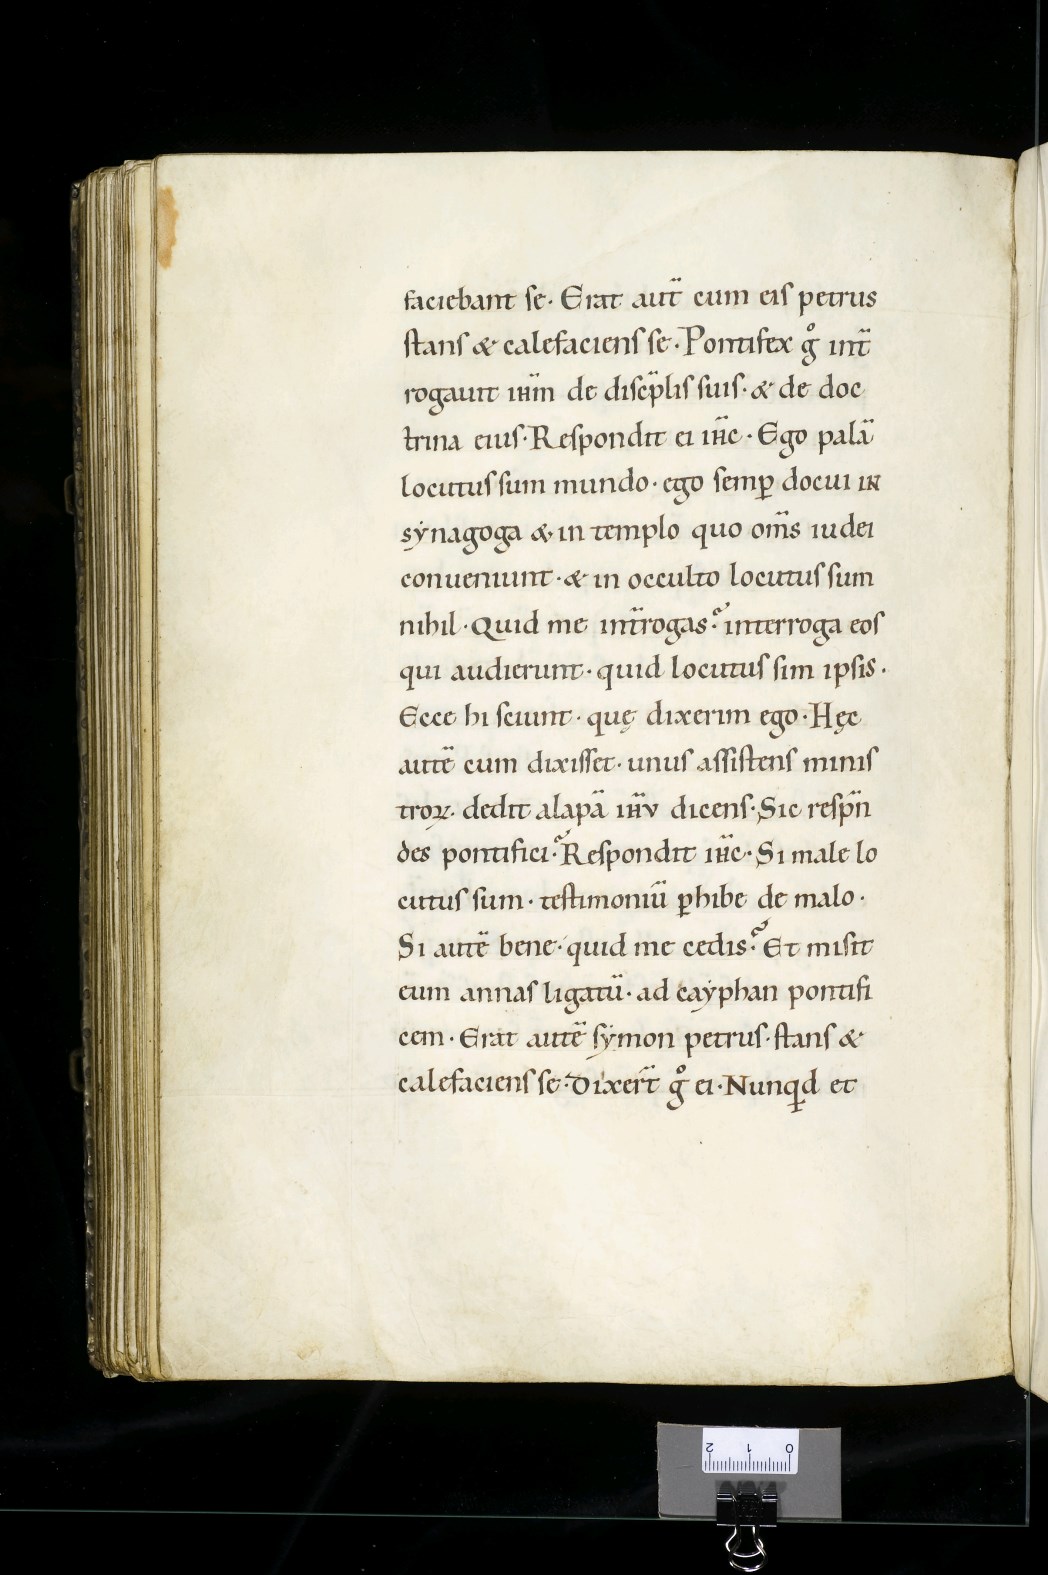 faciebant se. Erat aut̄ cum eis petrus
stans & calefaciens se. Pontifex g̊ int̄
rogauit ih̄m de discip̄lis suis. & de doc
trina eius. Respondit ei ih̄c. Ego palā
locutus sum mundo. ego semꝑ docui in
sẏnagoga & in templo quo om̄s iudei
conueniunt. & in occulto locutus sum
nihil. Quid me int̄rogas? interroga eos
qui audierunt. quid locutus sim ipsis.
Ecce hi sciunt. quę dixerim ego. Hęc
autē cum dixisset. unus assistens minis
troꝝ. dedit alapā ih̄v dicens. Sic resp̄n
des pontifici? Respondit ih̄c. Si male lo
cutus sum. testimoniū ꝑhibe de malo.
Si autē bene. quid me cedis? Et misit
eum annas ligatū. ad caẏphan pontifi
cem. Erat autē sẏmon petrus. stans &
calefaciens se. Dixer̄t g̊ ei. Nunqͥd et
2 1 0